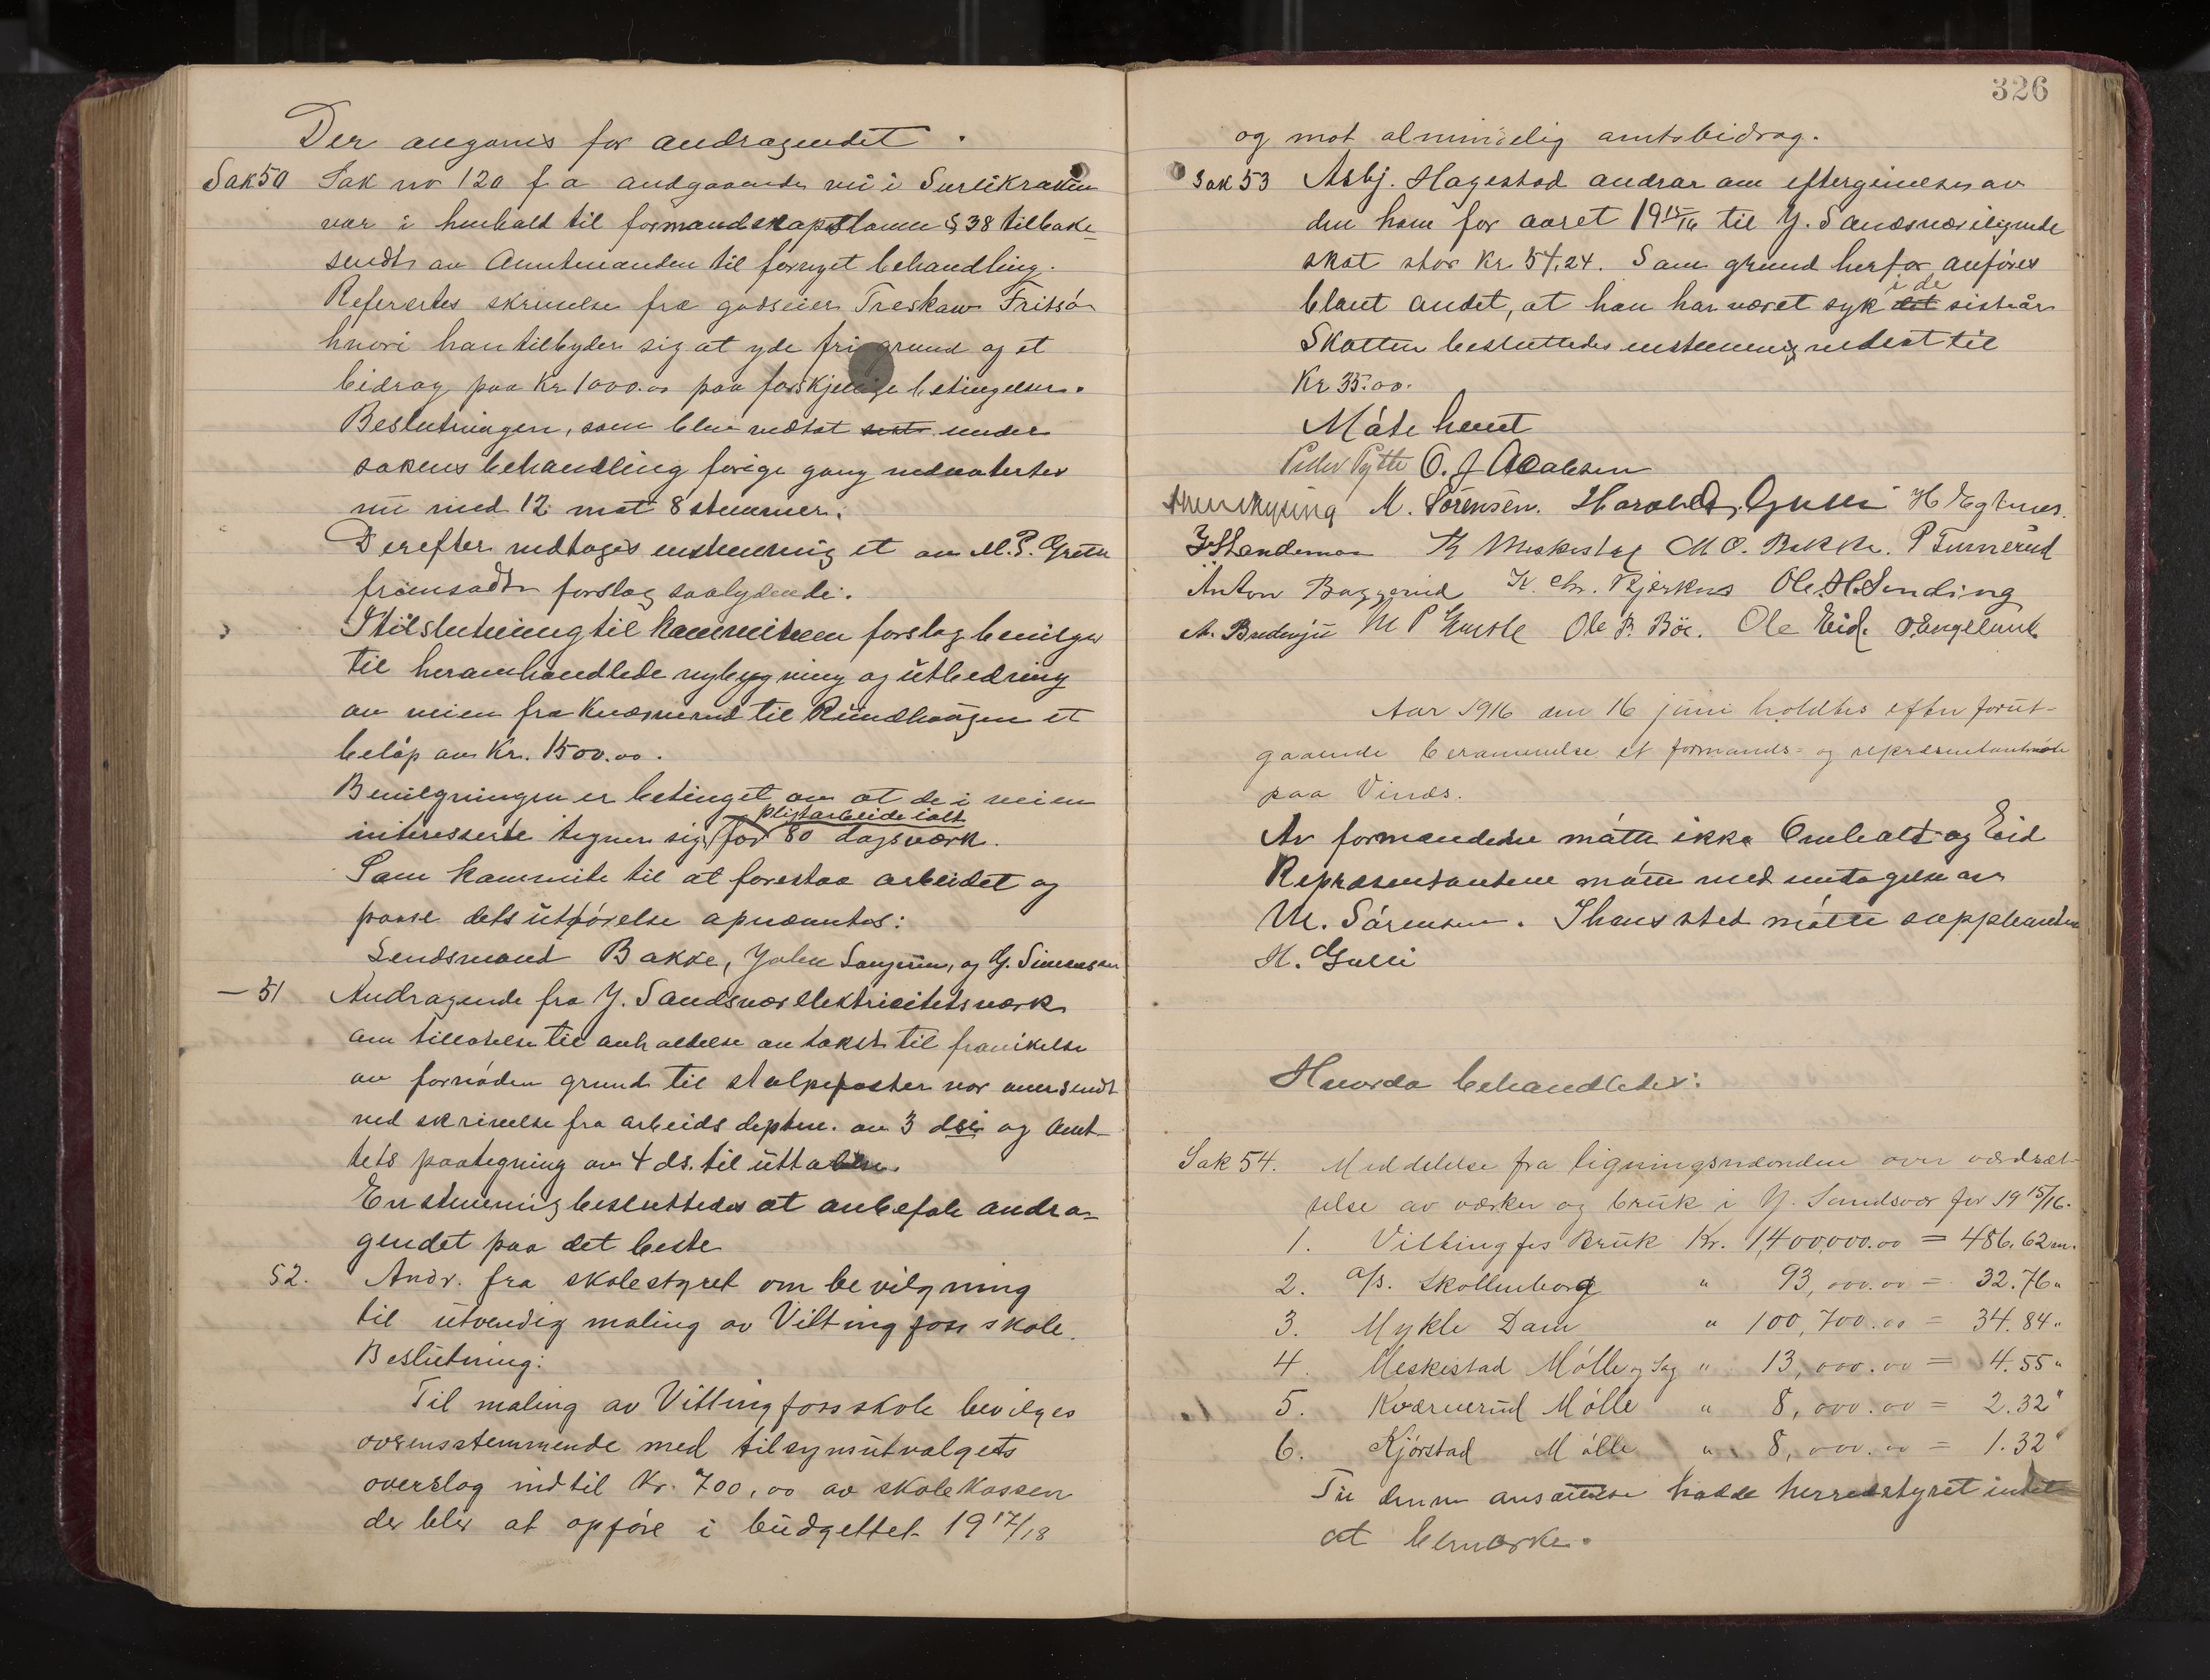 Der angaves for andragendet.
Sak 50 Sak no 120 f a angaaende vei i Surlikraken
var i henhold til formandskapsloven § 38 tilbake-
sendt av Amtmanden til fornyet behandling.
Refertes skrivelse fra godseier Treskow Fritsö
hvori han tilbyder sig at yde fri grund og et
bidrag paa Kr 1000.00 paa forskjellige betingelser.
Beslutningen, som blev vedtat under
sakens behandling forige gang vedtokes
nu med 12 mot 8 stemmer.
Derefter vedtoges enstemmig et av M. P. Grette
fremsadt forslag saalydende:
I tilslutning til kommiteens forslag bevilges
til heromhandlede nybygning og utbedring
av veien fra Kværnerud til Rundhaugen et
beløp av Kr. 1500.00.
Bevilgningen er betinget av at de i veien
pligtarbeide ialt
interesserte tegner sig for 80 dagsverk.
Som kommite til at forestaa arbeidet og
paase dets utförelse opnævntes:
Lendsmand Bakke, John og G. Simensen
— 51 Andragende fra Y. Sandsvær elektricitetsverk
om tilladelse til avholdelse av takst til fravikelse
av fornöden grund til stolpefæster var oversendt
ved skrivelse fra arbeidsdeptem. av 3 dse og Amt-
tets paategning av 4 ds. til uttalelse.
Enstemmig besluttedes at anbefale andra-
gendet paa det beste
52. Andr. fra skolestyret om bevilgning
til utvendig maling av Vittingfoss skole.
Beslutning:
Til maling av Vittingfoss skole bevilges
overensstemmende med tilsynsutvalgets
overslag indtil Kr. 700,00 av skolekassen
der blir at opføre i budgettet 1917/18
326
og mot almindelig amtsbidrag.
Sak 53 Asbj. Hagestad andrar om eftergivelse av
den ham for aaret 1915/16 til Y. Sandsvær ilignede
skat stor Kr. 54,24. Som grund herfor anföres
i de
blant andet, at han har været syk det siste år
Skatten besluttedes enstemmig nedsat til
Kr 35.00.
Möte hævet
Peder Pytte O. J. Acobsen
M. Sörensen. Harald Gulli H Eglines.
Meskestad M O. Bakke. P Turnerud
Anton Baggerud K. Chr. Bjerknes Ole H. Sending
M P Grette Ole B. Böe. Ole Eid. O Engelund
Aar 1916 den 16 juni holdtes efter forut-
gaaende berammelse et formands- og representantmöte
paa Vinæs.
Av formændene mötte ikke Omholt og Eid
Repræsentantene mötte med undtagelse av
M. Sörensen. I hans sted mötte suppleanten
H. Gulli
Hvorda behandledes:
Sak 54. Meddelelse fra ligningsnævnden over værdsæt-
telse av verker og bruk i Y. Sandsvær for 1915/16.
1. Vittingfos Bruk Kr. 1,400,000.00 = 486.62 m.
2. A/S. Skollenborg " 93,000.00 = 32.76 "
3. Mykle Dam " 100,700.00 = 34.84 "
4. Meskestad Mölle og Sag " 13,000.00 = 4.55 "
5. Kværnerud Mölle " 8,000.00 = 2.32 "
6. Kjörstad Mölle " 8,000.00 = 1.32 "
Til denne ansættelse hadde herredstyret intet
at bemerke.